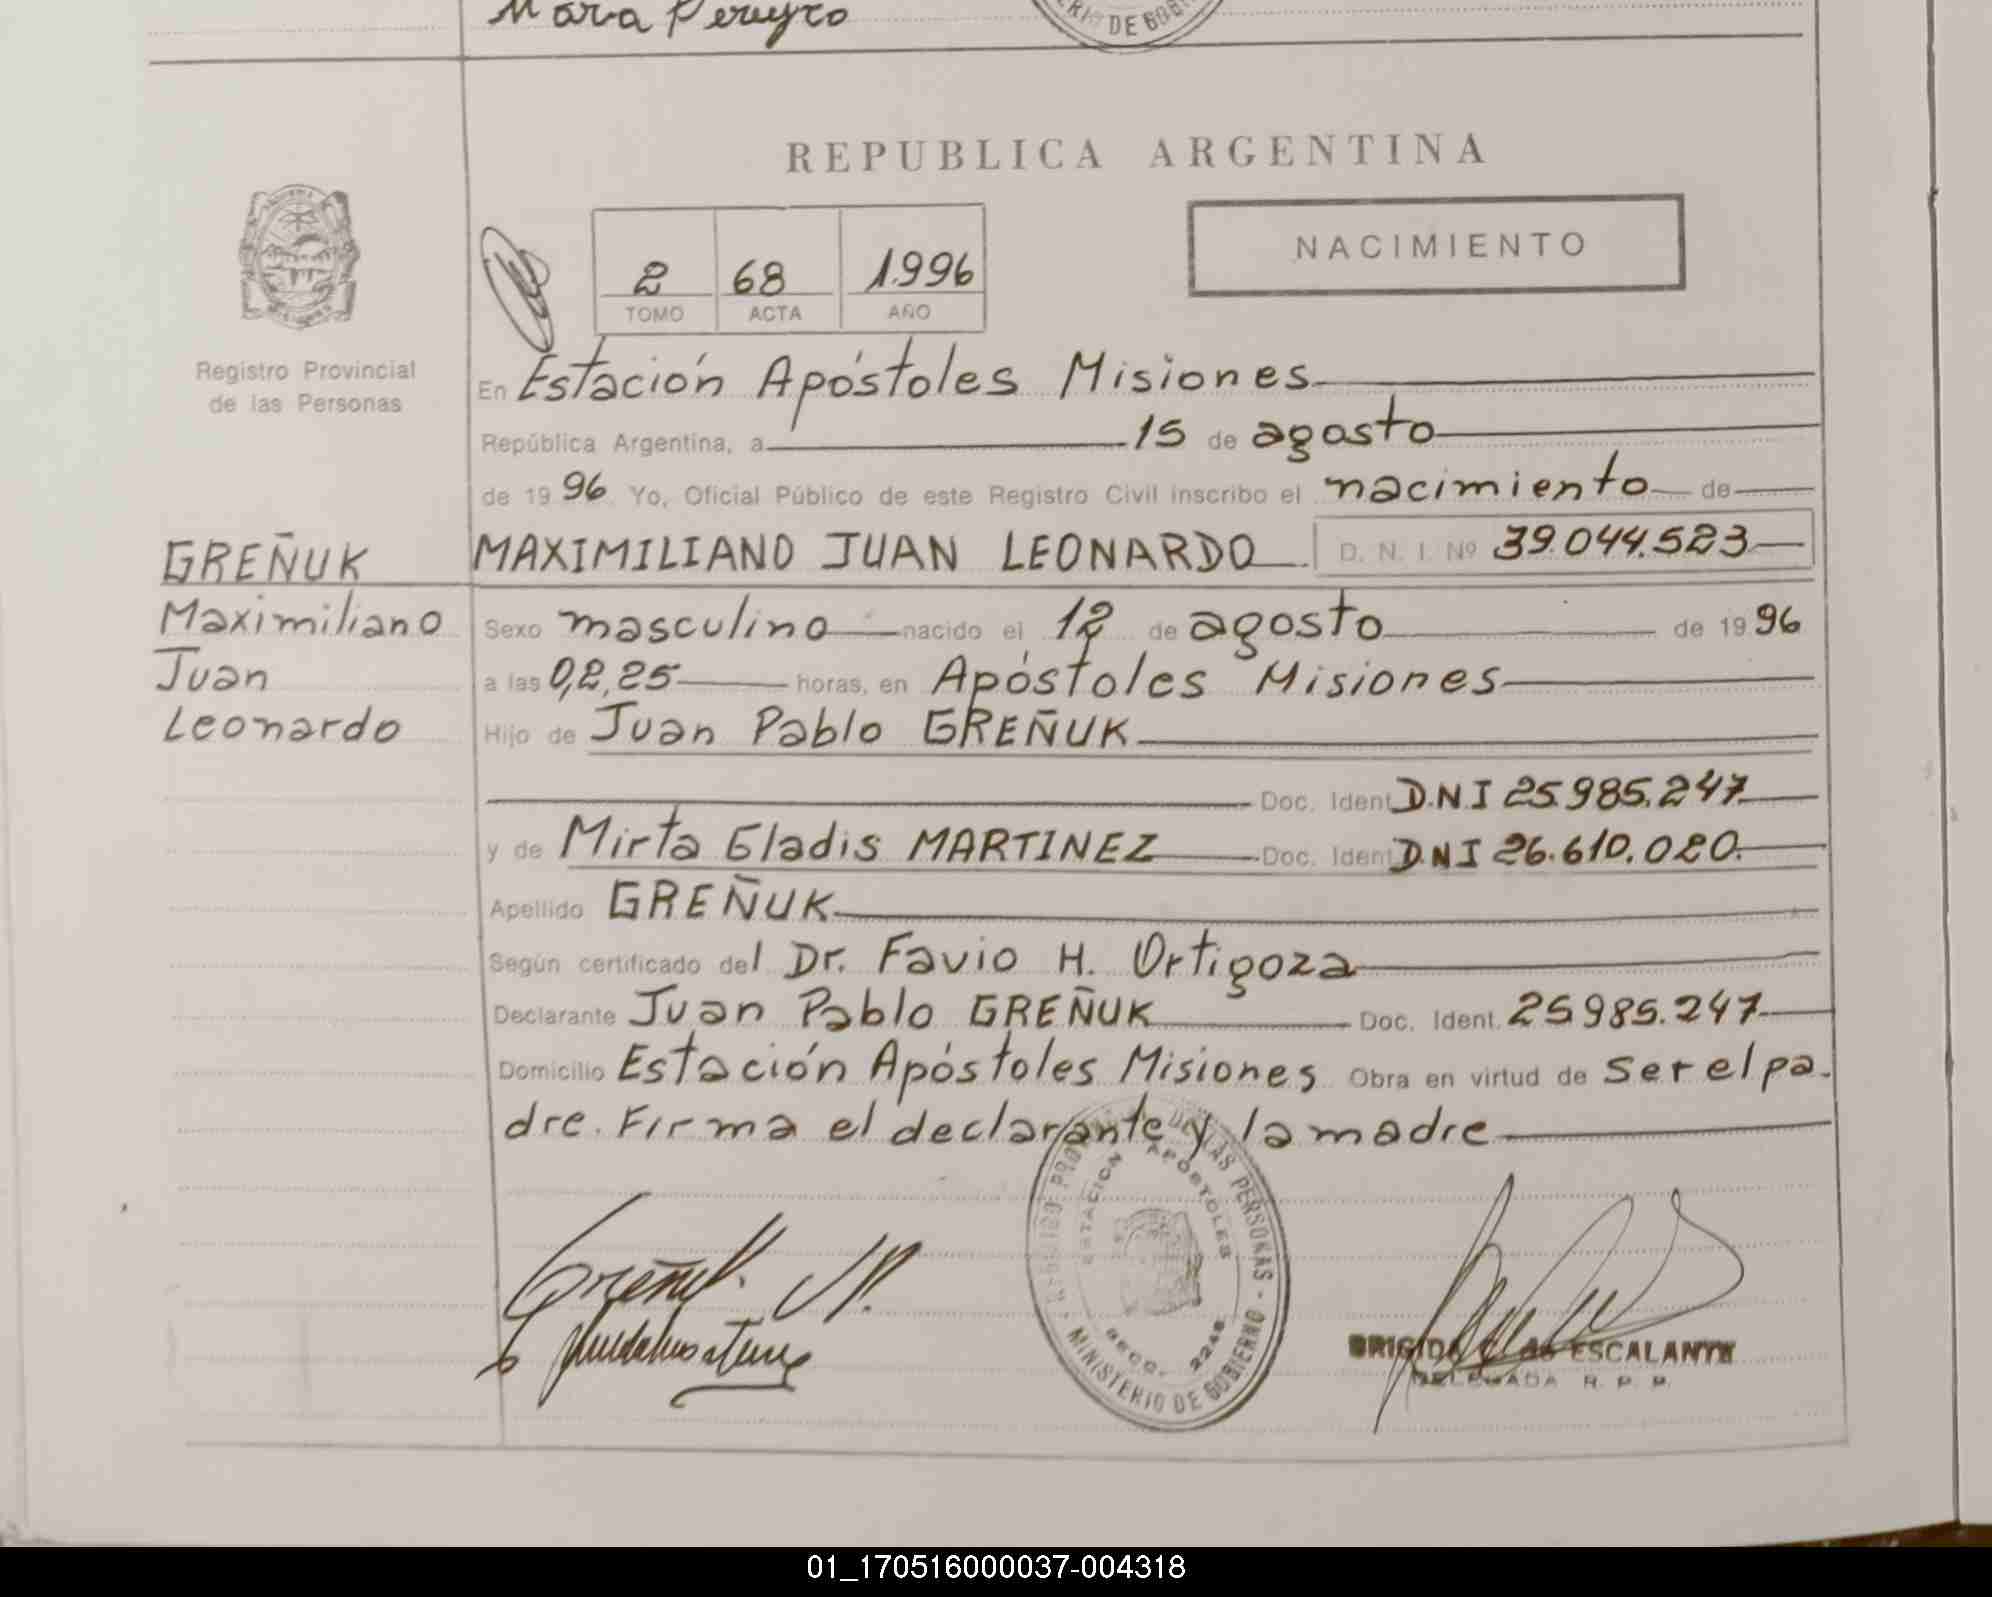 Mara Pereyro
RIO DE GOBI
REPUBLICA ARGENTINA
NACIMIENTO
2 68 1.996
TOMO ACTA AÑO
Registro Provincial
de las Personas
En Estación Apóstoles Misiones
República Argentina, a 15 de agosto
de 1996 Yo, Oficial Público de este Registro Civil inscribo el nacimiento de
GREÑUK
Maximiliano
Juan
Leonardo
MAXIMILIANO JUAN LEONARDO D. N. I. Nº 39.044.523
Sexo masculino nacido el 12 de agosto de 1996
a las 0,2,25 horas, en Apóstoles Misiones
Hijo de Juan Pablo GREÑUK
Doc. Ident. D.N.I 25.985.247
y de Mirta Gladis MARTINEZ Doc. Ident. D.N.I 26.610.020.
Apellido GREÑUK
Según certificado del Dr. Favio H. Ortigoza
Declarante Juan Pablo GREÑUK Doc. Ident. 25985.247
Domicilio Estación Apóstoles Misiones Obra en virtud de ser el pa-
dre. Firma el declarante y la madre
REGISTRO PROVINCIAL DE LAS PERSONAS - MINISTERIO DE GOBIERNO
ESTACION APOSTOLES
SECC. 2248
Greñuk J.P.
BRIGIDA de ESCALANTE
DELEGADA R. P. P.
01_170516000037-004318